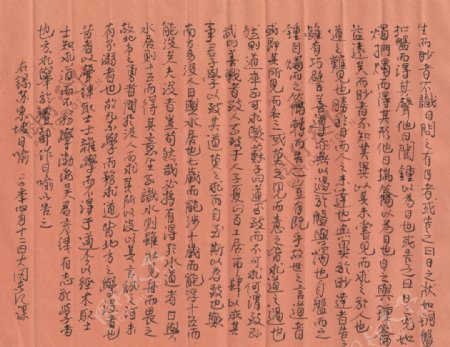 生而眇者不識日問之有目者或告之曰日之狀如銅盤
扣盤而得其聲他日聞鐘以為日也或告之曰日之光如
燭捫燭而得其形他日揣籥以為日也日之與鐘籥亦
遠矣而眇者不知其異以其未嘗見而求之於人也
道之難見也甚於日而人之未達也無以異於眇達者告之
雖有巧譬善導亦無以過於盤與燭也自盤而之
鐘自燭而之籥轉而相之豈有既乎故世之言道者
或即其所見而名之或莫之見而意之皆求道之過也
然則道卒不可求歟蘇子曰道可致而不可求何謂致孫
武曰善戰者致人不致于人子夏曰百工居肆以成其
事君子學以致其道莫之求而自至斯以為致也歟
南方多沒人日與水居也七歲而能涉十歲而能浮十五而
能沒矣夫沒者豈苟然哉必將有得於水道者日與
水居則十五而得其道生不識水則雖壯見舟而畏之
故北方之勇者問於沒人而求其所以沒以其言試之河未
有不溺者也故凡不學而務求道皆北方之學沒者也
昔者以聲律取士士雜學而不志于道今以經術取士
士知求道而不務學渤海吳君彥律有志於學者
也方求舉於禮部作日喻以告之
右錄蘇東坡日喻 四月十二日大同